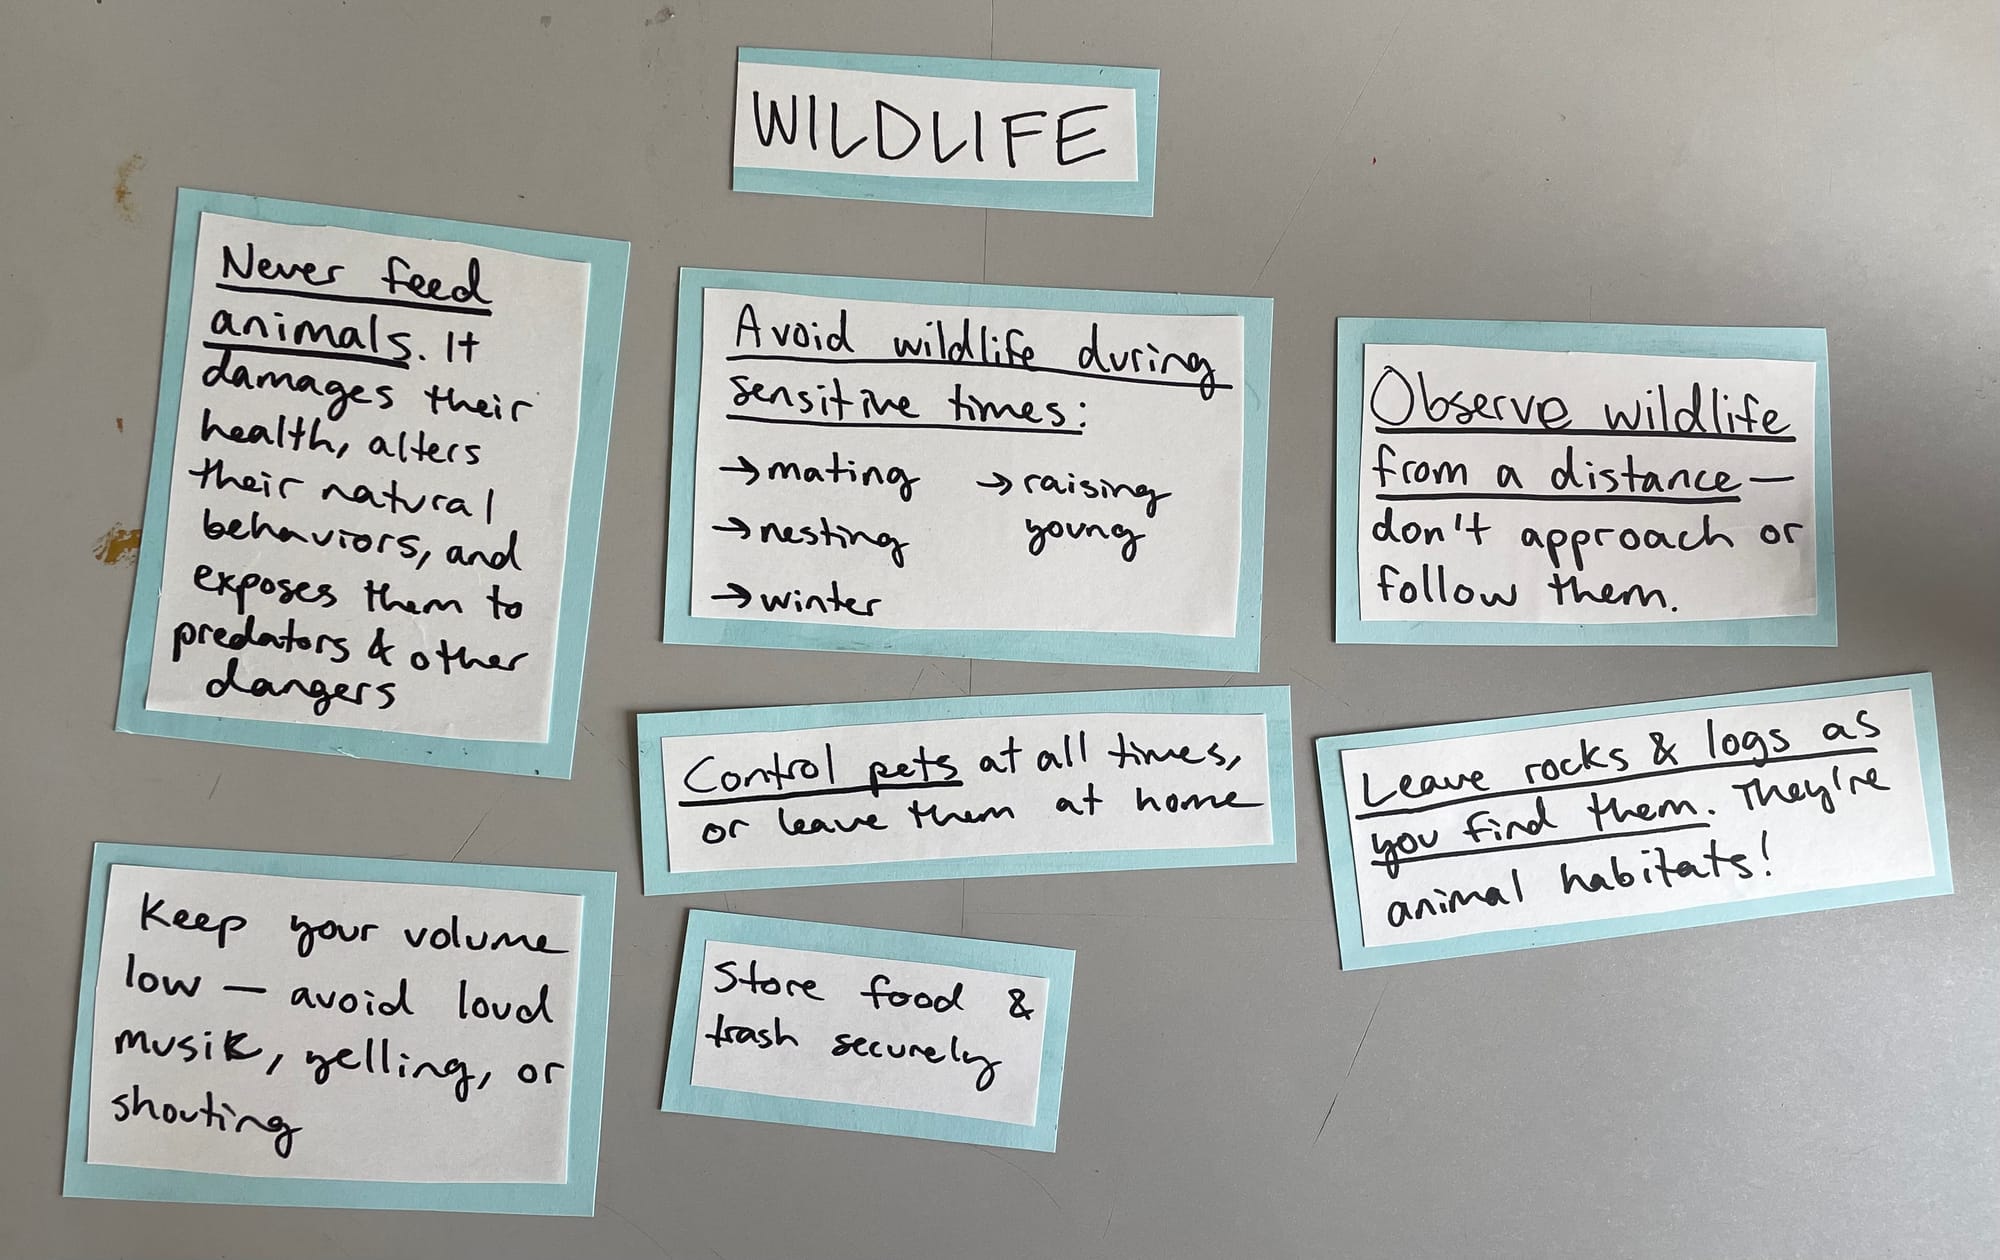 WILDLIFE
Never feed
animals. It
damages their
health, alters
their natural
behaviors, and
exposes them to
predators & other
dangers
Avoid wildlife during
sensitive times:
→ mating → raising
young
→ nesting
→ winter
Observe wildlife
from a distance —
don't approach or
follow them.
Control pets at all times,
or leave them at home
Leave rocks & logs as
you find them. They're
animal habitats!
Keep your volume
low — avoid loud
musik, yelling, or
shouting
Store food &
trash securely